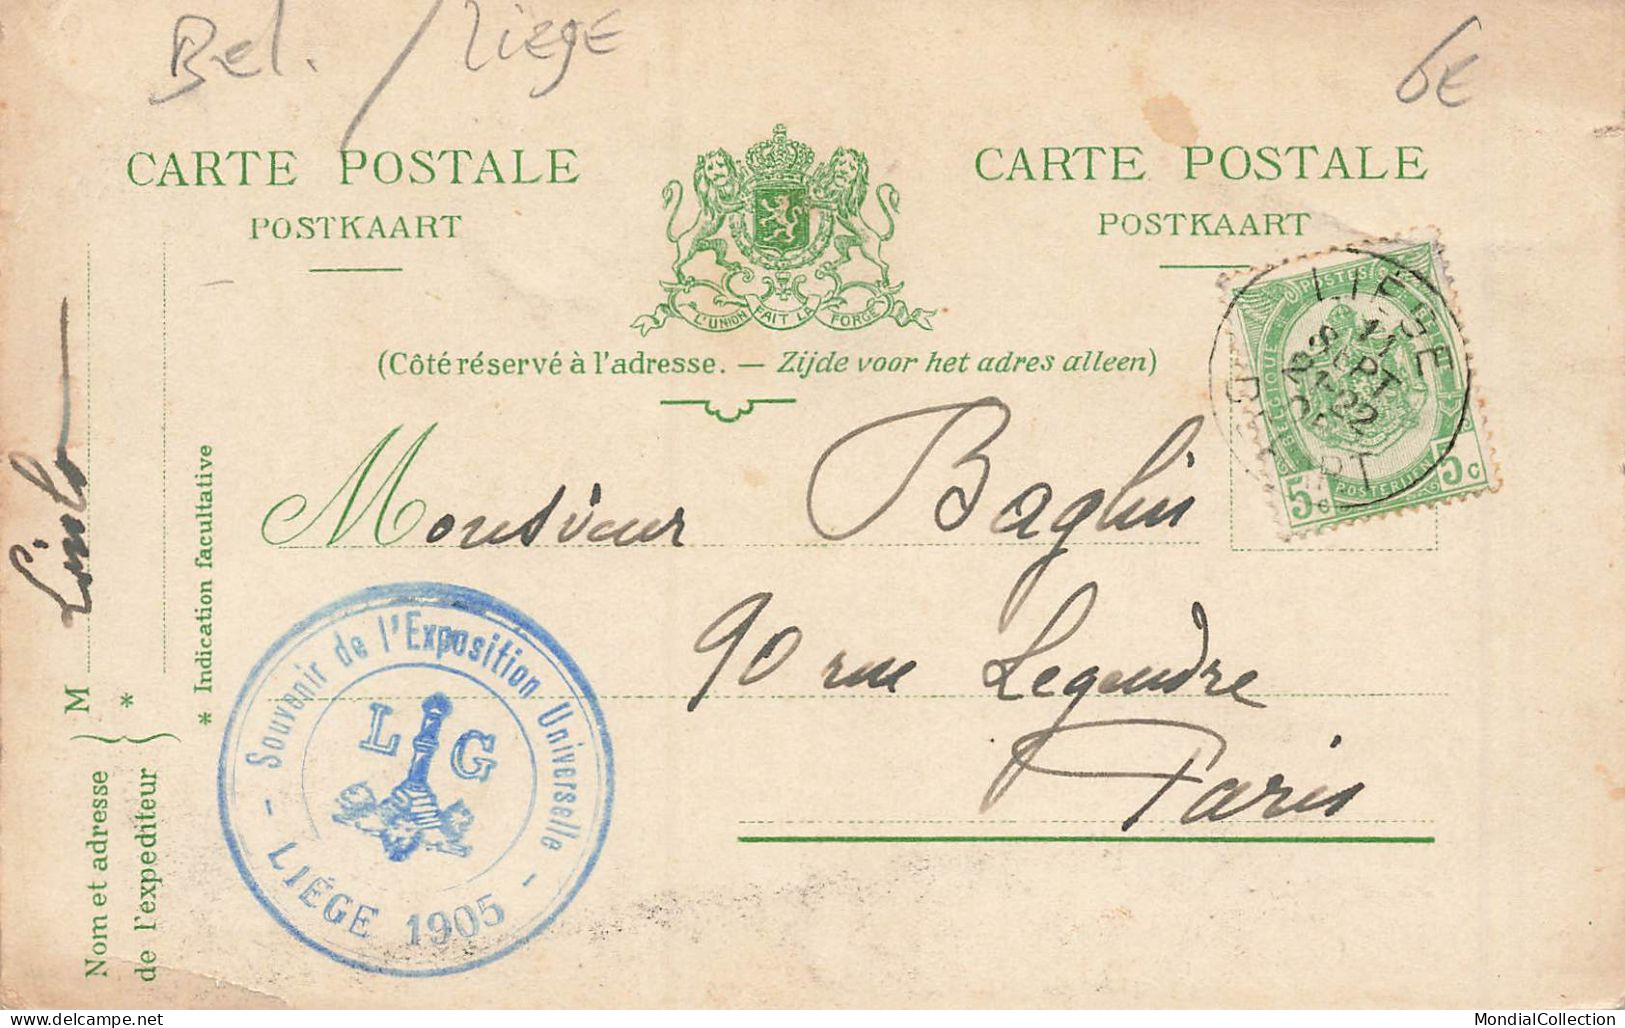 Bel. / Liege
6€
CARTE POSTALE
POSTKAART
CARTE POSTALE
POSTKAART
L'UNION FAIT LA FORCE
(Côté réservé à l'adresse. — Zijde voor het adres alleen)
LIÈGE
11
SEPT
DÉPART
POSTES
BELGIQUE
POSTERIJEN
5c 5c
Monsieur Baglin
90 rue Legendre
Paris
M
*
* Indication facultative
Nom et adresse
de l'expéditeur
- Souvenir de l'Exposition Universelle -
L G
LIÉGE 1905
MondialCollection